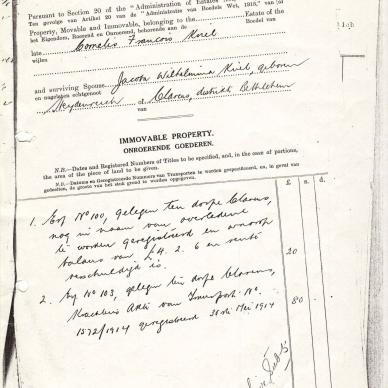 Pursuant to Section 20 of the "Administration of Estates
Ten gevolge van Artikel 20 van de "Administratie van Boedels Wet, 1913," van (de)
Property, Movable and Immovable, belonging to the Estate of the
het Eigendom, Roerend en Onroerend, behorende aan de Boedel van
late Cornelis Francois
wijlen
and surviving Spouse Jacoba Wilhelmina geboren
en nagelaten echtgenoot
of Clarens, distrikt Bethlehem
van
IMMOVABLE PROPERTY.
ONROERENDE GOEDEREN.
N.B.—Dates and Registered Numbers of Titles to be specified, and, in the case of portions,
the area of the piece of land to be given.
N.B.—Datums en Geregistreerde Nummers van Transporten te worden gespecificeerd, en, in geval van
gedeelten, de grootte van het stuk grond te worden opgegeven.
£ s. d.
1. Erf No 100, gelegen ten dorpe Clarens,
nog in naam van overledene
te worden geregistreerd en waarop
balans van £4. 2. 6 en rente
verschuldigd is. 20
2. Erf No 103, gelegen ten dorpe Clarens,
Krachtens Akte van Transport No.
1572/1914 geregistreerd 30ste Mei 1914 80